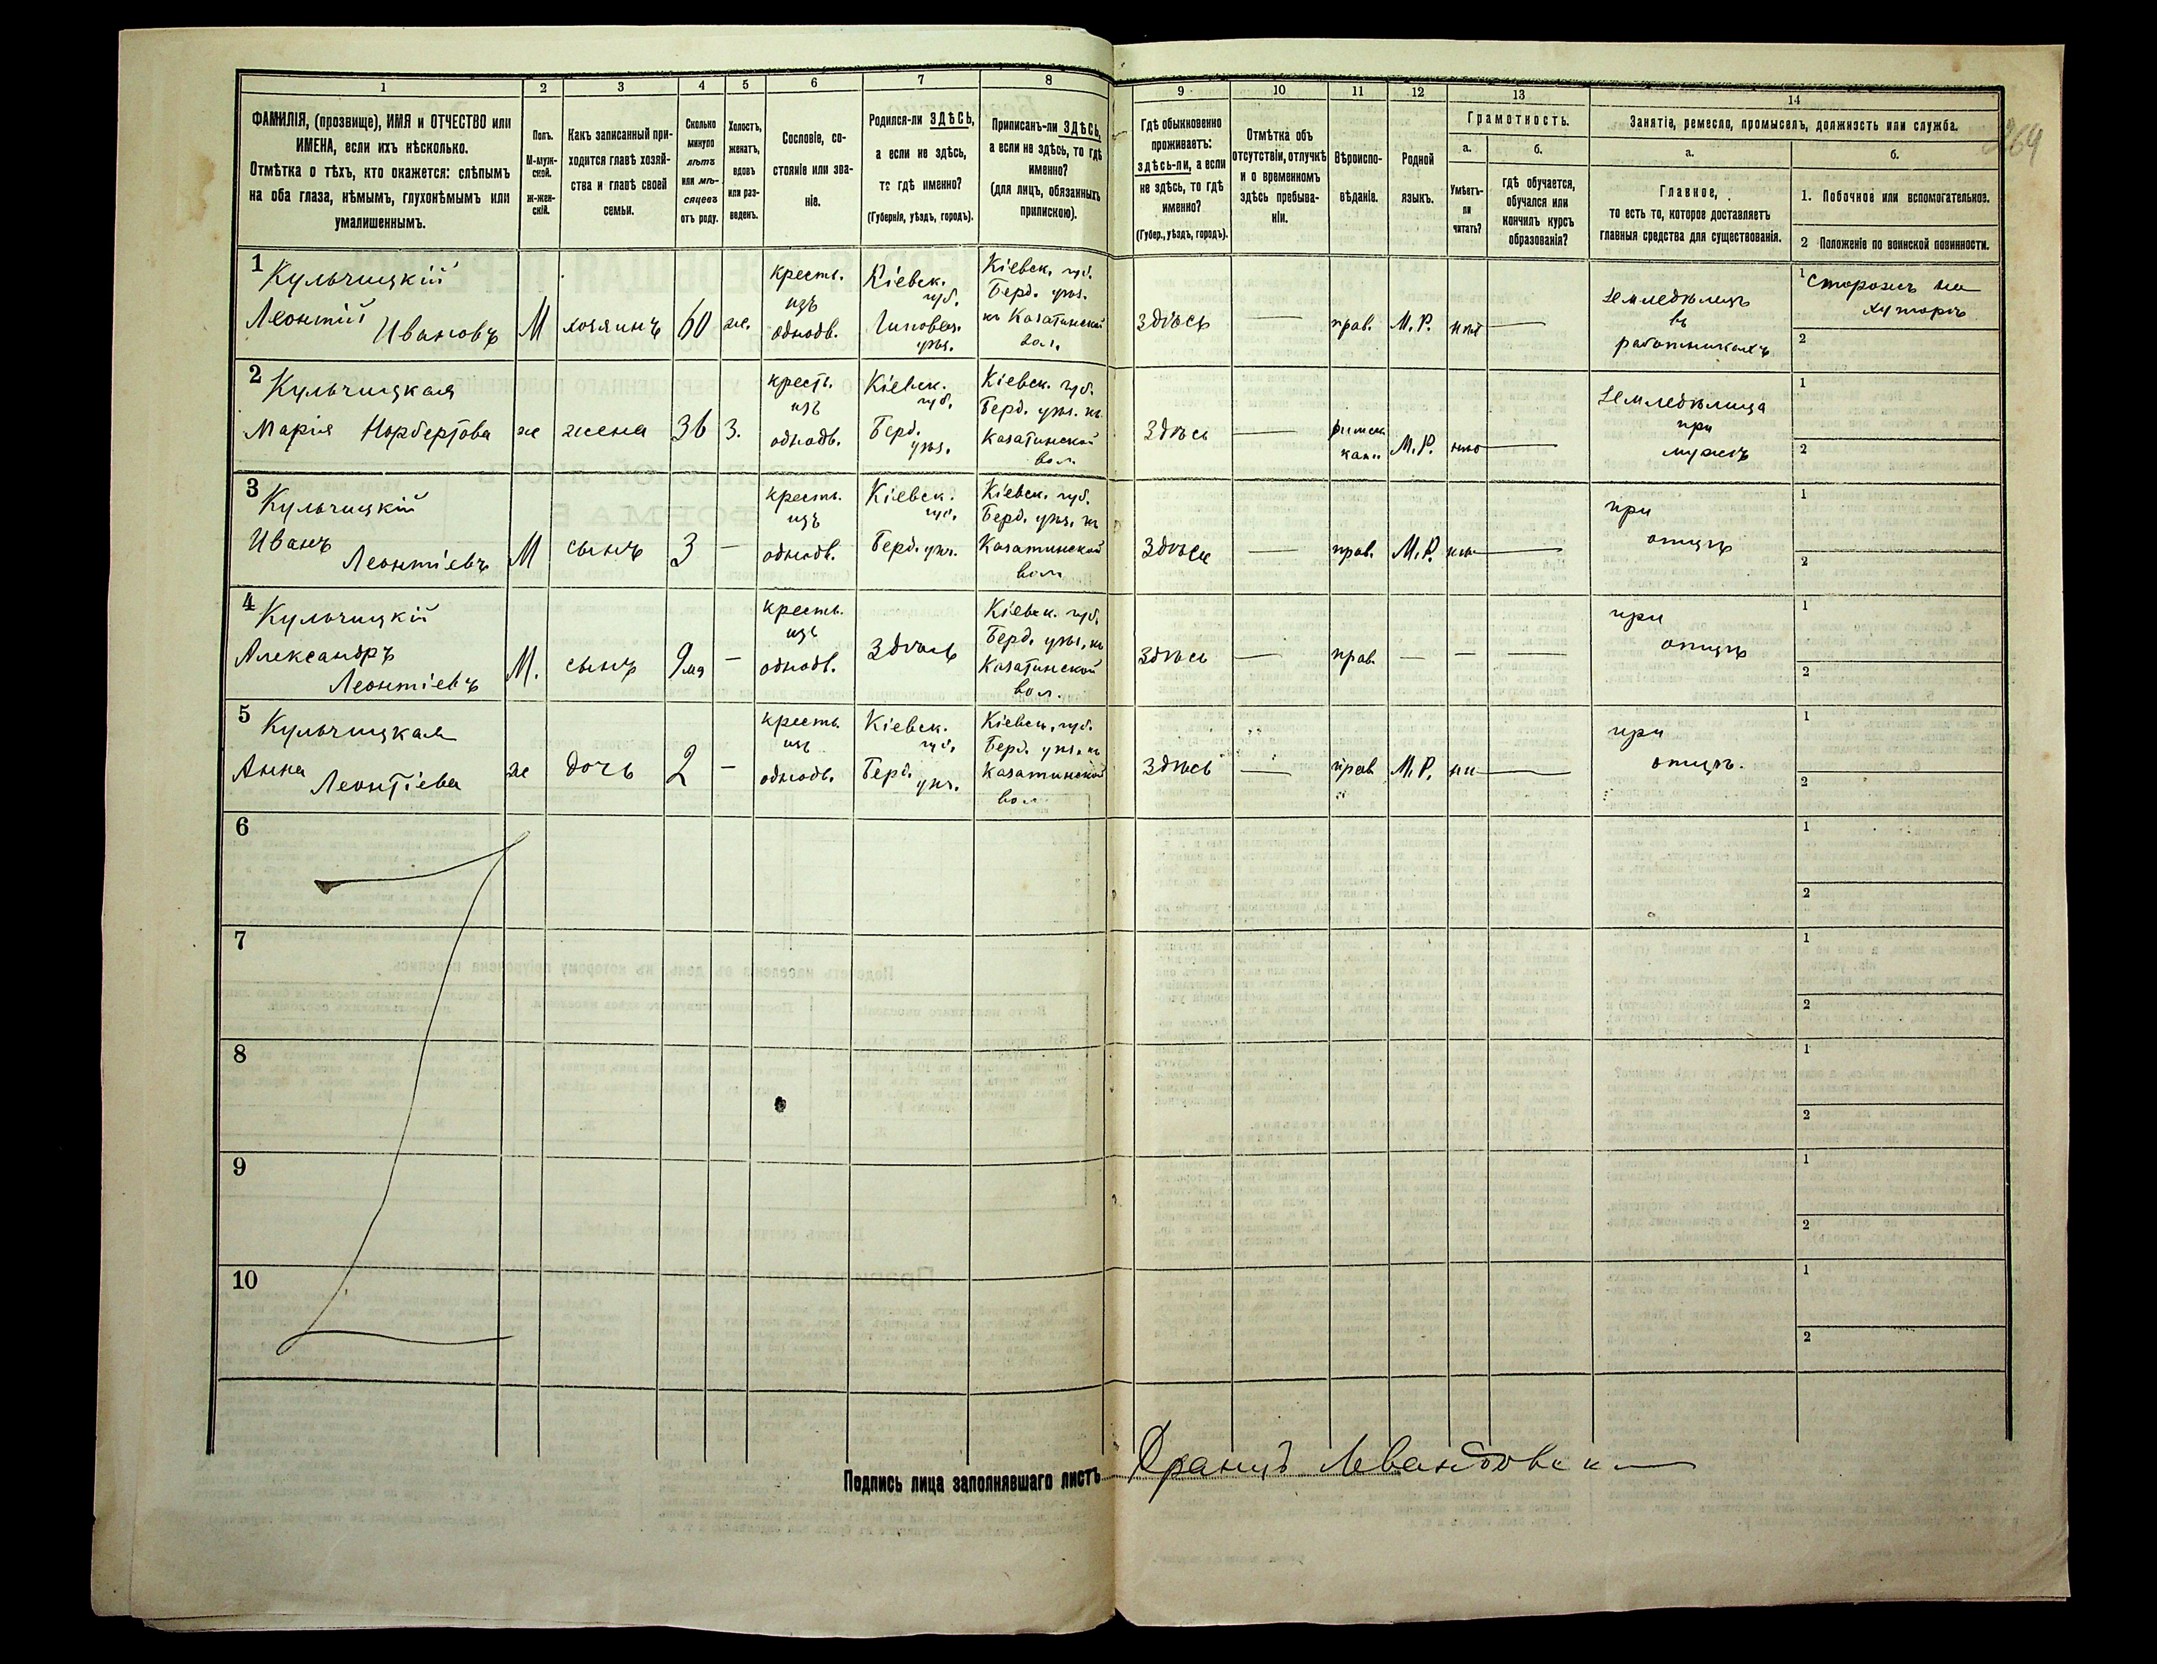 1 2 3 4 5 6 7 8 9 10 11 12 13 14
ФАМИЛІЯ, (прозвище), ИМЯ и ОТЧЕСТВО или
ИМЕНА, если ихъ нѣсколько.
Отмѣтка о тѣхъ, кто окажется: слѣпымъ
на оба глаза, нѣмымъ, глухонѣмымъ или
умалишеннымъ.
Полъ.
М-муж-
ской.
Ж-жен-
скій.
Какъ записанный при-
ходится главѣ хозяй-
ства и главѣ своей
семьи.
Сколько
минуло
лѣтъ
или мѣ-
сяцевъ
отъ роду.
Холостъ,
женатъ,
вдовъ
или раз-
веденъ.
Сословіе, со-
стояніе или зва-
ніе.
Родился-ли ЗДѢСЬ,
а если не здѣсь,
то гдѣ именно?
(Губернія, уѣздъ, городъ).
Приписанъ-ли ЗДѢСЬ,
а если не здѣсь, то гдѣ
именно?
(для лицъ, обязанныхъ
припискою).
Гдѣ обыкновенно
проживаетъ:
здѣсь-ли, а если
не здѣсь, то гдѣ
именно?
(Губер., уѣздъ, городъ).
Отмѣтка объ
отсутствіи, отлучкѣ
и о временномъ
здѣсь пребыва-
ніи.
Вѣроиспо-
вѣданіе.
Родной
языкъ.
Грамотность.
а.
Умѣетъ-
ли
читать?
б.
гдѣ обучается,
обучался или
кончилъ курсъ
образованія?
Занятіе, ремесло, промыселъ, должность или служба.
а.
Главное,
то есть то, которое доставляетъ
главныя средства для существованія.
б.
1. Побочное или вспомогательное.
2 Положеніе по воинской повинности.
264
1 Кульчицкій
Леонтій
Ивановъ
М хозяинъ 60 же.
кресть.
изъ
однодв.
Кіевск.
губ.
Липовец.
уѣз.
Кіевск. губ.
Берд. уѣз.
къ Козатинской
вол.
здѣсь — прав. М.Р. нѣт —
земледѣлецъ
въ
работникахъ
1 Сторожъ на
хуторѣ
2
2 Кульчицкая
Марія Норбертова
же жена 36 з.
крест.
изъ
однодв.
Кіевск.
губ.
Берд.
уѣз.
Кіевск. губ.
Берд. уѣз. къ
Козатинской
вол.
Здѣсь —
римск
кат.
М.Р.
земледѣлица
при
мужѣ
1
2
3 Кульчицкій
Иванъ
Леонтіевъ
М сынъ 3 —
кресть.
изъ
однодв.
Кіевск.
губ.
Берд. уѣз.
Кіевск. губ.
Берд. уѣз. къ
Козатинской
вол.
Здѣсь — прав. М.Р. —
при
отцѣ
1
2
4 Кульчицкій
Александръ
Леонтіевъ
М. сынъ —
кресть.
изъ
однодв.
Здѣсь
Кіевск. губ.
Берд. уѣз. къ
Козатинской
вол.
Здѣсь — прав. — — —
при
отцѣ
1
2
5 Кульчицкая
Анна
Леонтіева
же дочь 2 —
кресть.
изъ
однодв.
Кіевск.
губ.
Берд.
уѣз.
Кіевск. губ.
Берд. уѣз. къ
Козатинской
вол.
Здѣсь — прав М.Р. —
при
отцѣ.
1
2
6
1
2
7
1
2
8
1
2
9
1
2
10
1
2
Подпись лица заполнявшаго листъ Францъ